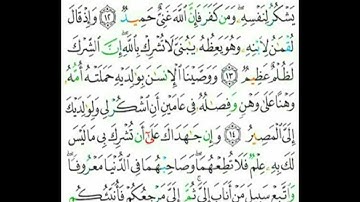 يَشْكُرُ لِنَفْسِهِۦ ۖ وَمَن كَفَرَ فَإِنَّ ٱللَّهَ غَنِىٌّ حَمِيدٌ ١٢ وَإِذْ قَالَ
لُقْمَـٰنُ لِٱبْنِهِۦ وَهُوَ يَعِظُهُۥ يَـٰبُنَىَّ لَا تُشْرِكْ بِٱللَّهِ ۖ إِنَّ ٱلشِّرْكَ
لَظُلْمٌ عَظِيمٌ ١٣ وَوَصَّيْنَا ٱلْإِنسَـٰنَ بِوَٰلِدَيْهِ حَمَلَتْهُ أُمُّهُۥ
وَهْنًا عَلَىٰ وَهْنٍ وَفِصَـٰلُهُۥ فِى عَامَيْنِ أَنِ ٱشْكُرْ لِى وَلِوَٰلِدَيْكَ
إِلَىَّ ٱلْمَصِيرُ ١٤ وَإِن جَـٰهَدَاكَ عَلَىٰٓ أَن تُشْرِكَ بِى مَا لَيْسَ
لَكَ بِهِۦ عِلْمٌ فَلَا تُطِعْهُمَا ۖ وَصَاحِبْهُمَا فِى ٱلدُّنْيَا مَعْرُوفًا ۖ
وَٱتَّبِعْ سَبِيلَ مَنْ أَنَابَ إِلَىَّ ۚ ثُمَّ إِلَىَّ مَرْجِعُكُمْ فَأُنَبِّئُكُم